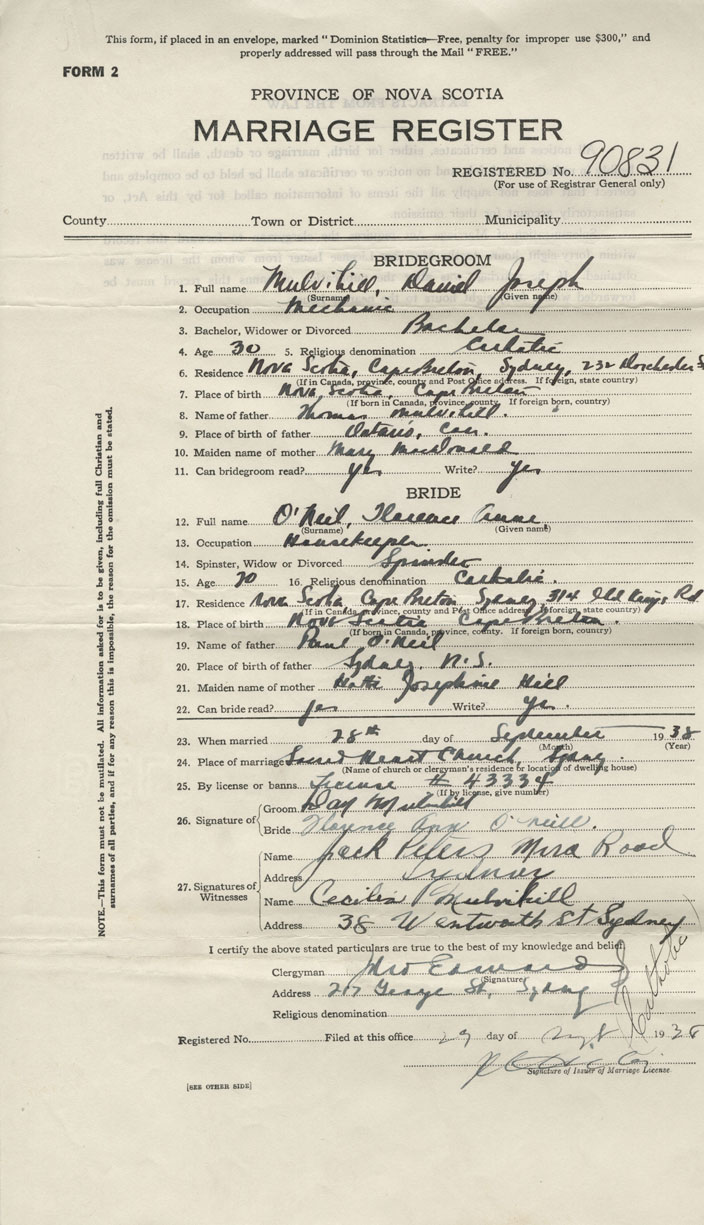 This form, if placed in an envelope, marked "Dominion Statistics—Free, penalty for improper use $300," and
properly addressed will pass through the Mail "FREE."
FORM 2
PROVINCE OF NOVA SCOTIA
MARRIAGE REGISTER
REGISTERED No. 90831
(For use of Registrar General only)
County Town or District Municipality
BRIDEGROOM
1. Full name Mulvihill, Daniel Joseph
(Surname) (Given name)
2. Occupation Mechanic
3. Bachelor, Widower or Divorced Bachelor
4. Age 30 5. Religious denomination Catholic
6. Residence Nova Scotia, Cape Breton, Sydney, 232 Dorchester S
(If in Canada, province, county and Post Office address. If foreign, state country)
7. Place of birth Nova Scotia, Cape Breton
(If born in Canada, province, county. If foreign born, country)
8. Name of father Thomas Mulvihill.
9. Place of birth of father Ontario, Can.
10. Maiden name of mother Mary MacDonald
11. Can bridegroom read? yes Write? yes
BRIDE
12. Full name O'Neil, Florence Anne
(Surname) (Given name)
13. Occupation Housekeeper
14. Spinster, Widow or Divorced Spinster
15. Age 20 16. Religious denomination Catholic.
17. Residence Nova Scotia, Cape Breton, Sydney, 314 Old Kings Rd
(If in Canada, province, county and Post Office address. If foreign, state country)
18. Place of birth Nova Scotia Cape Breton.
(If born in Canada, province, county. If foreign born, country)
19. Name of father Paul O'Neil
20. Place of birth of father Sydney, N.S.
21. Maiden name of mother Josephine Hill
22. Can bride read? yes Write? yes.
23. When married 28th day of September 1938
(Month) (Year)
24. Place of marriage Sacred Heart Church, Sydney.
(Name of church or clergyman's residence or location of dwelling house)
25. By license or banns License # 43334
(If by license, give number)
26. Signature of Groom Dan Mulvihill
Bride Florence Ann O'Neill.
27. Signatures of Witnesses
Name Jack Peters Mira Road
Address Sydney
Name Cecilia Mulvihill
Address 38 Wentworth St Sydney
I certify the above stated particulars are true to the best of my knowledge and belief,
Clergyman
(Signature)
Address 217 George St, Sydney
Religious denomination Catholic
Registered No. Filed at this office 29 day of Sept 1938
Signature of Issuer of Marriage License
[SEE OTHER SIDE]
NOTE.—This form must not be mutilated. All information asked for is to be given, including full Christian and
surnames of all parties, and if for any reason this is impossible, the reason for the omission must be stated.